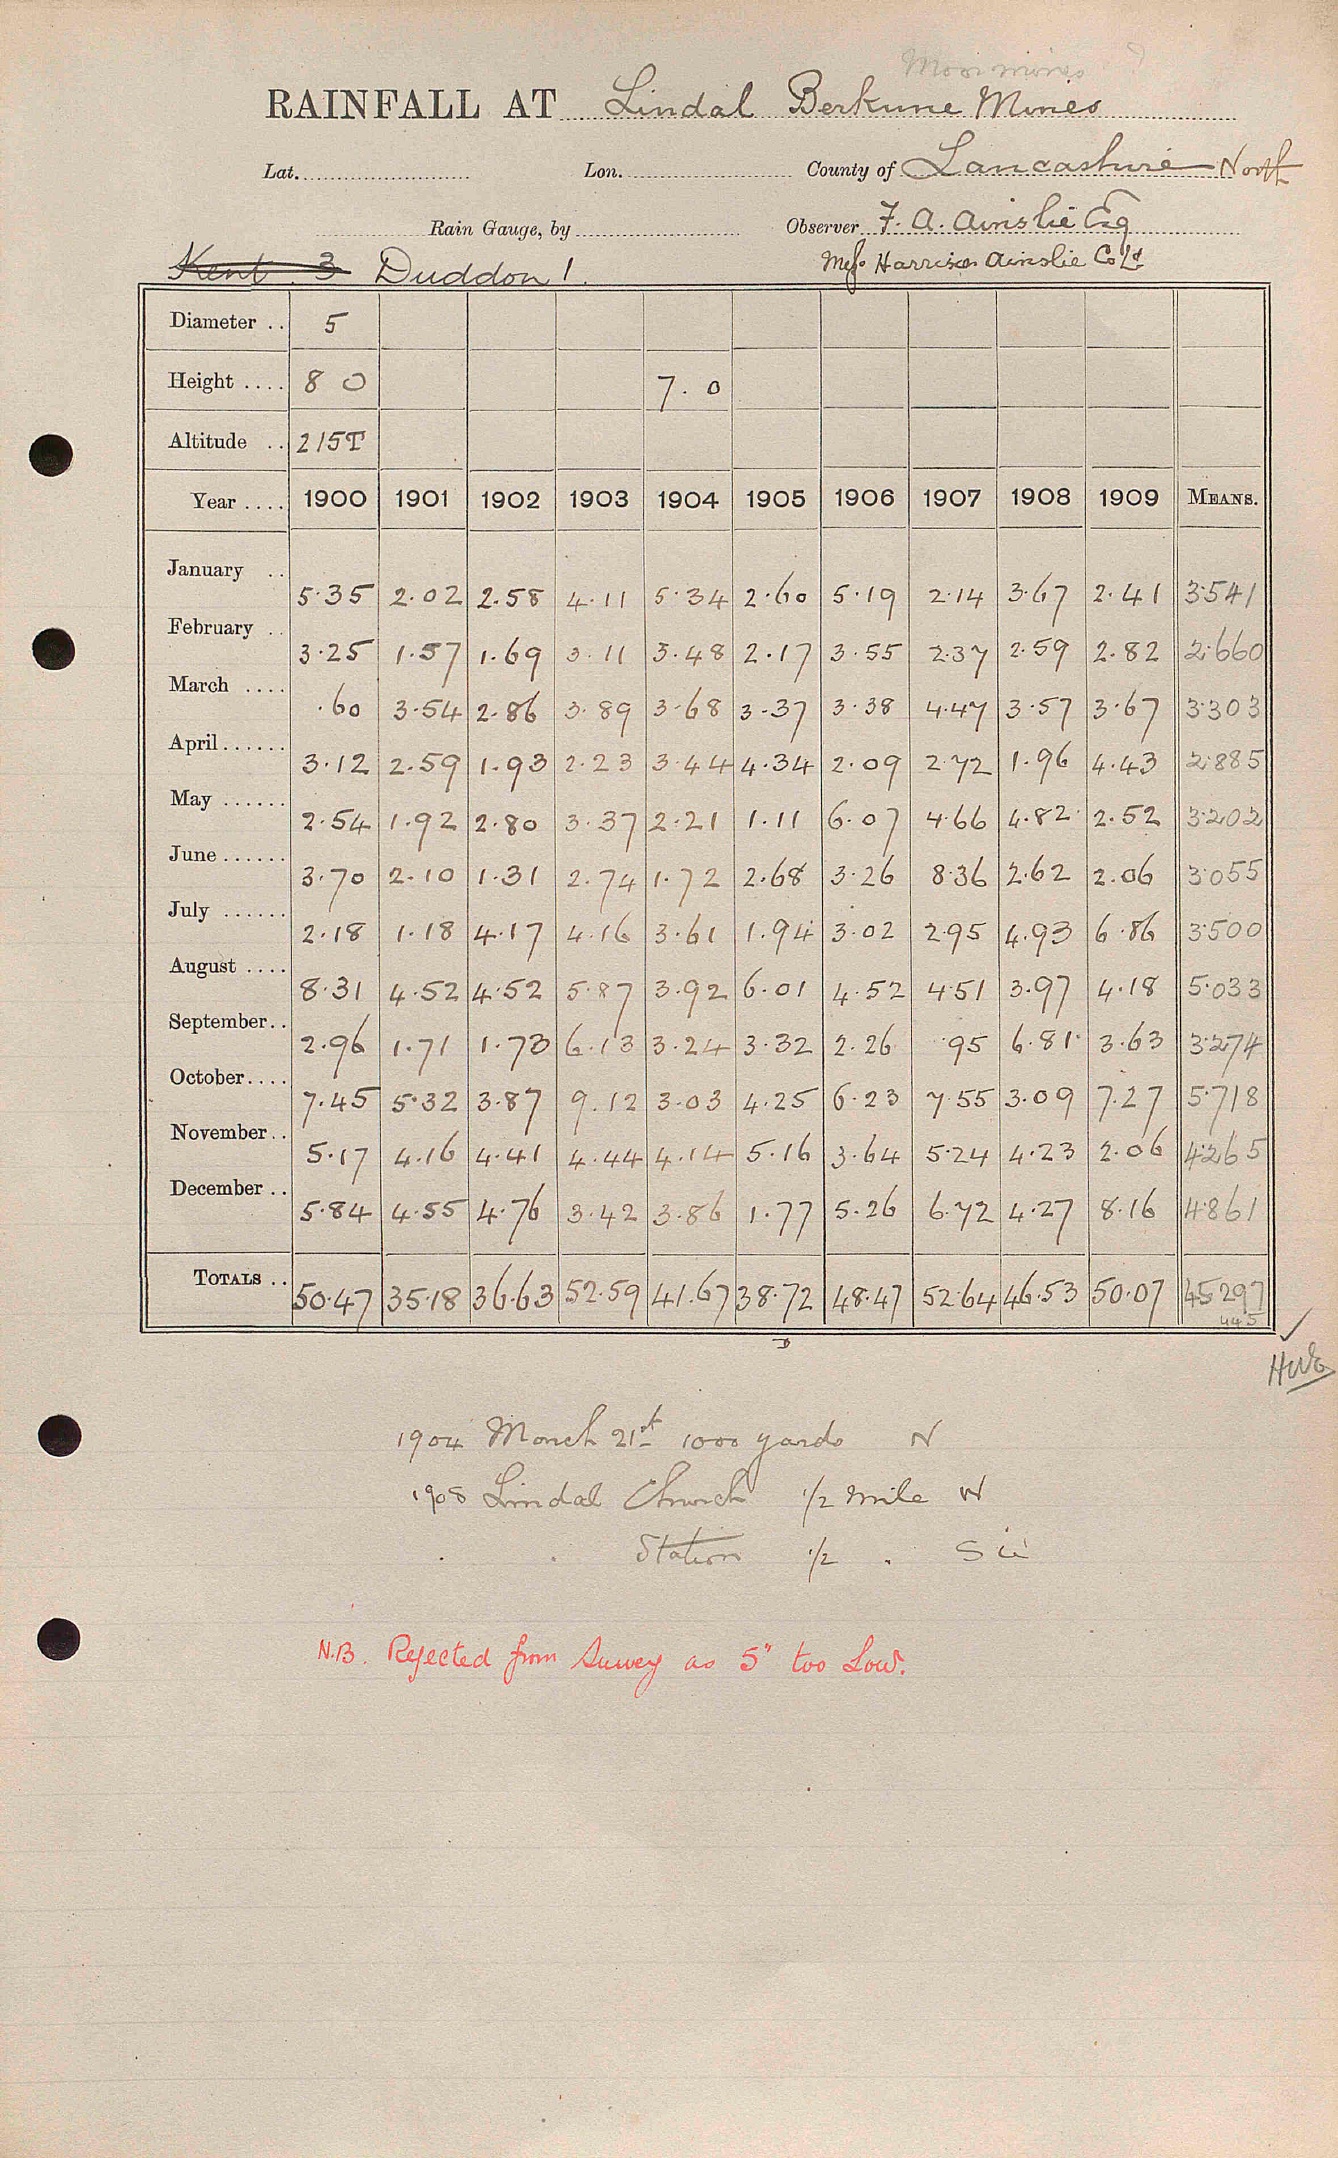 Moor mines
RAINFALL AT Lindal Berkune Mines
Lat. Lon. County of Lancashire North
Rain Gauge, by Observer F. A. Ainslie Esq
Kent 3 Duddon 1. Messrs Harrison Ainslie Co Ld
Diameter .. 5
Height .... 8 0 7. 0
Altitude .. 215T
Year .... 1900 1901 1902 1903 1904 1905 1906 1907 1908 1909 MEANS.
January .. 5.35 2.02 2.58 4.11 5.34 2.60 5.19 2.14 3.67 2.41 3.541
February .. 3.25 1.57 1.69 3.11 3.48 2.17 3.55 2.37 2.59 2.82 2.660
March .... .60 3.54 2.86 3.89 3.68 3.37 3.38 4.47 3.57 3.67 3.303
April...... 3.12 2.59 1.93 2.23 3.44 4.34 2.09 2.72 1.96 4.43 2.885
May ...... 2.54 1.92 2.80 3.37 2.21 1.11 6.07 4.66 4.82 2.52 3.202
June...... 3.70 2.10 1.31 2.74 1.72 2.68 3.26 8.36 2.62 2.06 3.055
July ...... 2.18 1.18 4.17 4.16 3.61 1.94 3.02 2.95 4.93 6.86 3.500
August .... 8.31 4.52 4.52 5.87 3.92 6.01 4.52 4.51 3.97 4.18 5.033
September.. 2.96 1.71 1.73 6.13 3.24 3.32 2.26 .95 6.81 3.63 3.274
October.... 7.45 5.32 3.87 9.12 3.03 4.25 6.23 7.55 3.09 7.27 5.718
November.. 5.17 4.16 4.41 4.44 4.14 5.16 3.64 5.24 4.23 2.06 4.265
December .. 5.84 4.55 4.76 3.42 3.86 1.77 5.26 6.72 4.27 8.16 4.861
TOTALS .. 50.47 35.18 36.63 52.59 41.67 38.72 48.47 52.64 46.53 50.07 45297
445
1904 March 21st 1000 yards N
1908 Lindal Church 1/2 mile W
. . Station 1/2 . S
N.B. Rejected from Survey as 5" too Low.